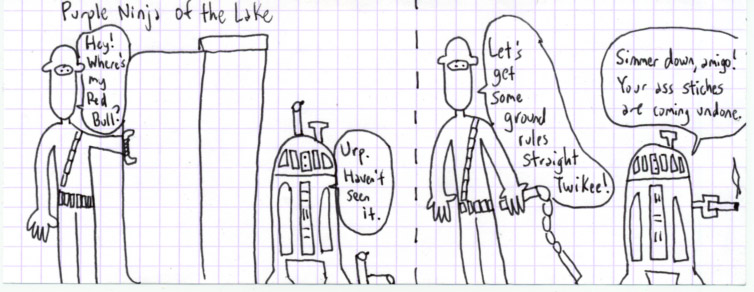 Purple Ninja of the Lake
Hey!
Where's
my
Red
Bull?
Urp.
Haven't
seen
it.
Let's
get
some
ground
rules
straight
Twikee!
Simmer down, amigo!
Your ass stiches
are coming undone.